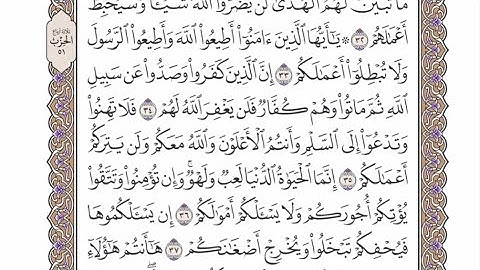 مَا تَبَيَّنَ لَهُمُ ٱلْهُدَىٰ لَن يَضُرُّوا۟ ٱللَّهَ شَيْـًٔا وَسَيُحْبِطُ
أَعْمَٰلَهُمْ ٣٢ ۞ يَٰٓأَيُّهَا ٱلَّذِينَ ءَامَنُوٓا۟ أَطِيعُوا۟ ٱللَّهَ وَأَطِيعُوا۟ ٱلرَّسُولَ
وَلَا تُبْطِلُوٓا۟ أَعْمَٰلَكُمْ ٣٣ إِنَّ ٱلَّذِينَ كَفَرُوا۟ وَصَدُّوا۟ عَن سَبِيلِ
ٱللَّهِ ثُمَّ مَاتُوا۟ وَهُمْ كُفَّارٌ فَلَن يَغْفِرَ ٱللَّهُ لَهُمْ ٣٤ فَلَا تَهِنُوا۟
وَتَدْعُوٓا۟ إِلَى ٱلسَّلْمِ وَأَنتُمُ ٱلْأَعْلَوْنَ وَٱللَّهُ مَعَكُمْ وَلَن يَتِرَكُمْ
أَعْمَٰلَكُمْ ٣٥ إِنَّمَا ٱلْحَيَوٰةُ ٱلدُّنْيَا لَعِبٌ وَلَهْوٌ ۚ وَإِن تُؤْمِنُوا۟ وَتَتَّقُوا۟
يُؤْتِكُمْ أُجُورَكُمْ وَلَا يَسْـَٔلْكُمْ أَمْوَٰلَكُمْ ٣٦ إِن يَسْـَٔلْكُمُوهَا
فَيُحْفِكُمْ تَبْخَلُوا۟ وَيُخْرِجْ أَضْغَٰنَكُمْ ٣٧ هَٰٓأَنتُمْ هَٰٓؤُلَآءِ
الحِزْبُ
٥١